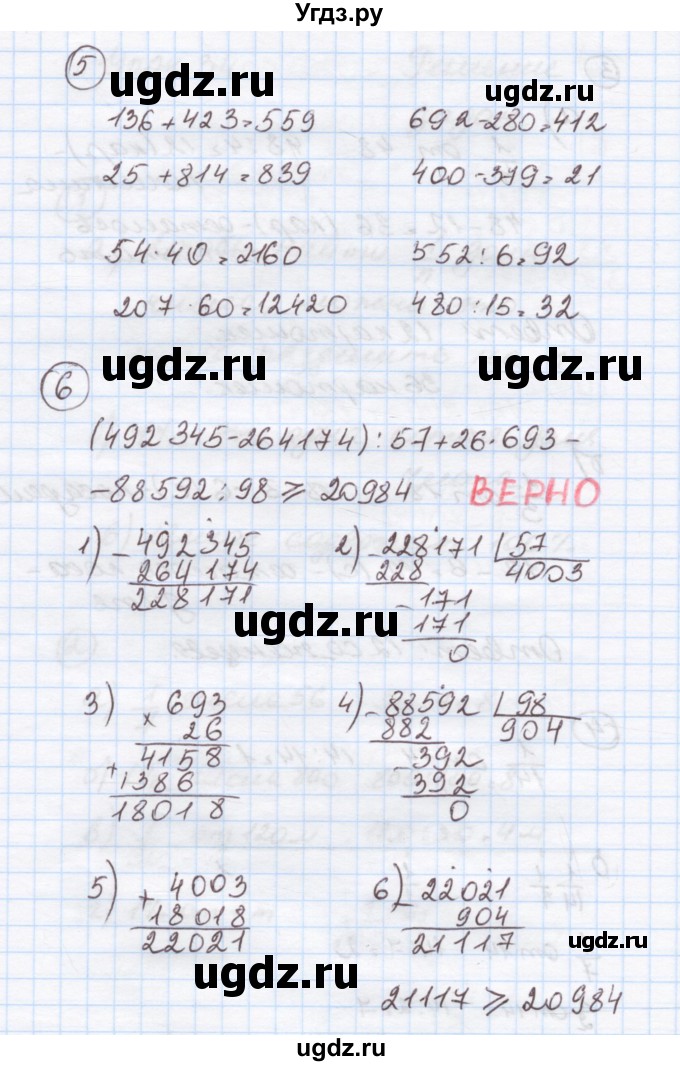 Угдз.ру
5
136+423=559 692-280=412
25+814=839 400-379=21
54·40=2160 552:6=92
207·60=12420 480:15=32
6
(492345-264174):57+26·693-
-88592:98⩾20984 ВЕРНО
1) -492345 2) -228171 57
264174 228 4003
228171 -171
171
0
3) ×693 4) -88592 98
26 882 904
+4158 -392
1386 392
18018 0
5) +4003 6) -22021
18018 904
22021 21117
21117⩾20984
ugdz.ru
ugdz.ru
ugdz.ru
ugdz.ru
ugdz.ru
ugdz.ru
ugdz.ru
ugdz.ru
ugdz.ru